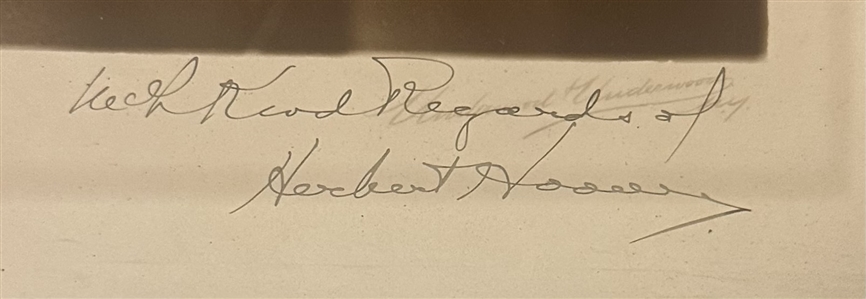 With Kind Regards of
Underwood & Underwood
Herbert Hoover